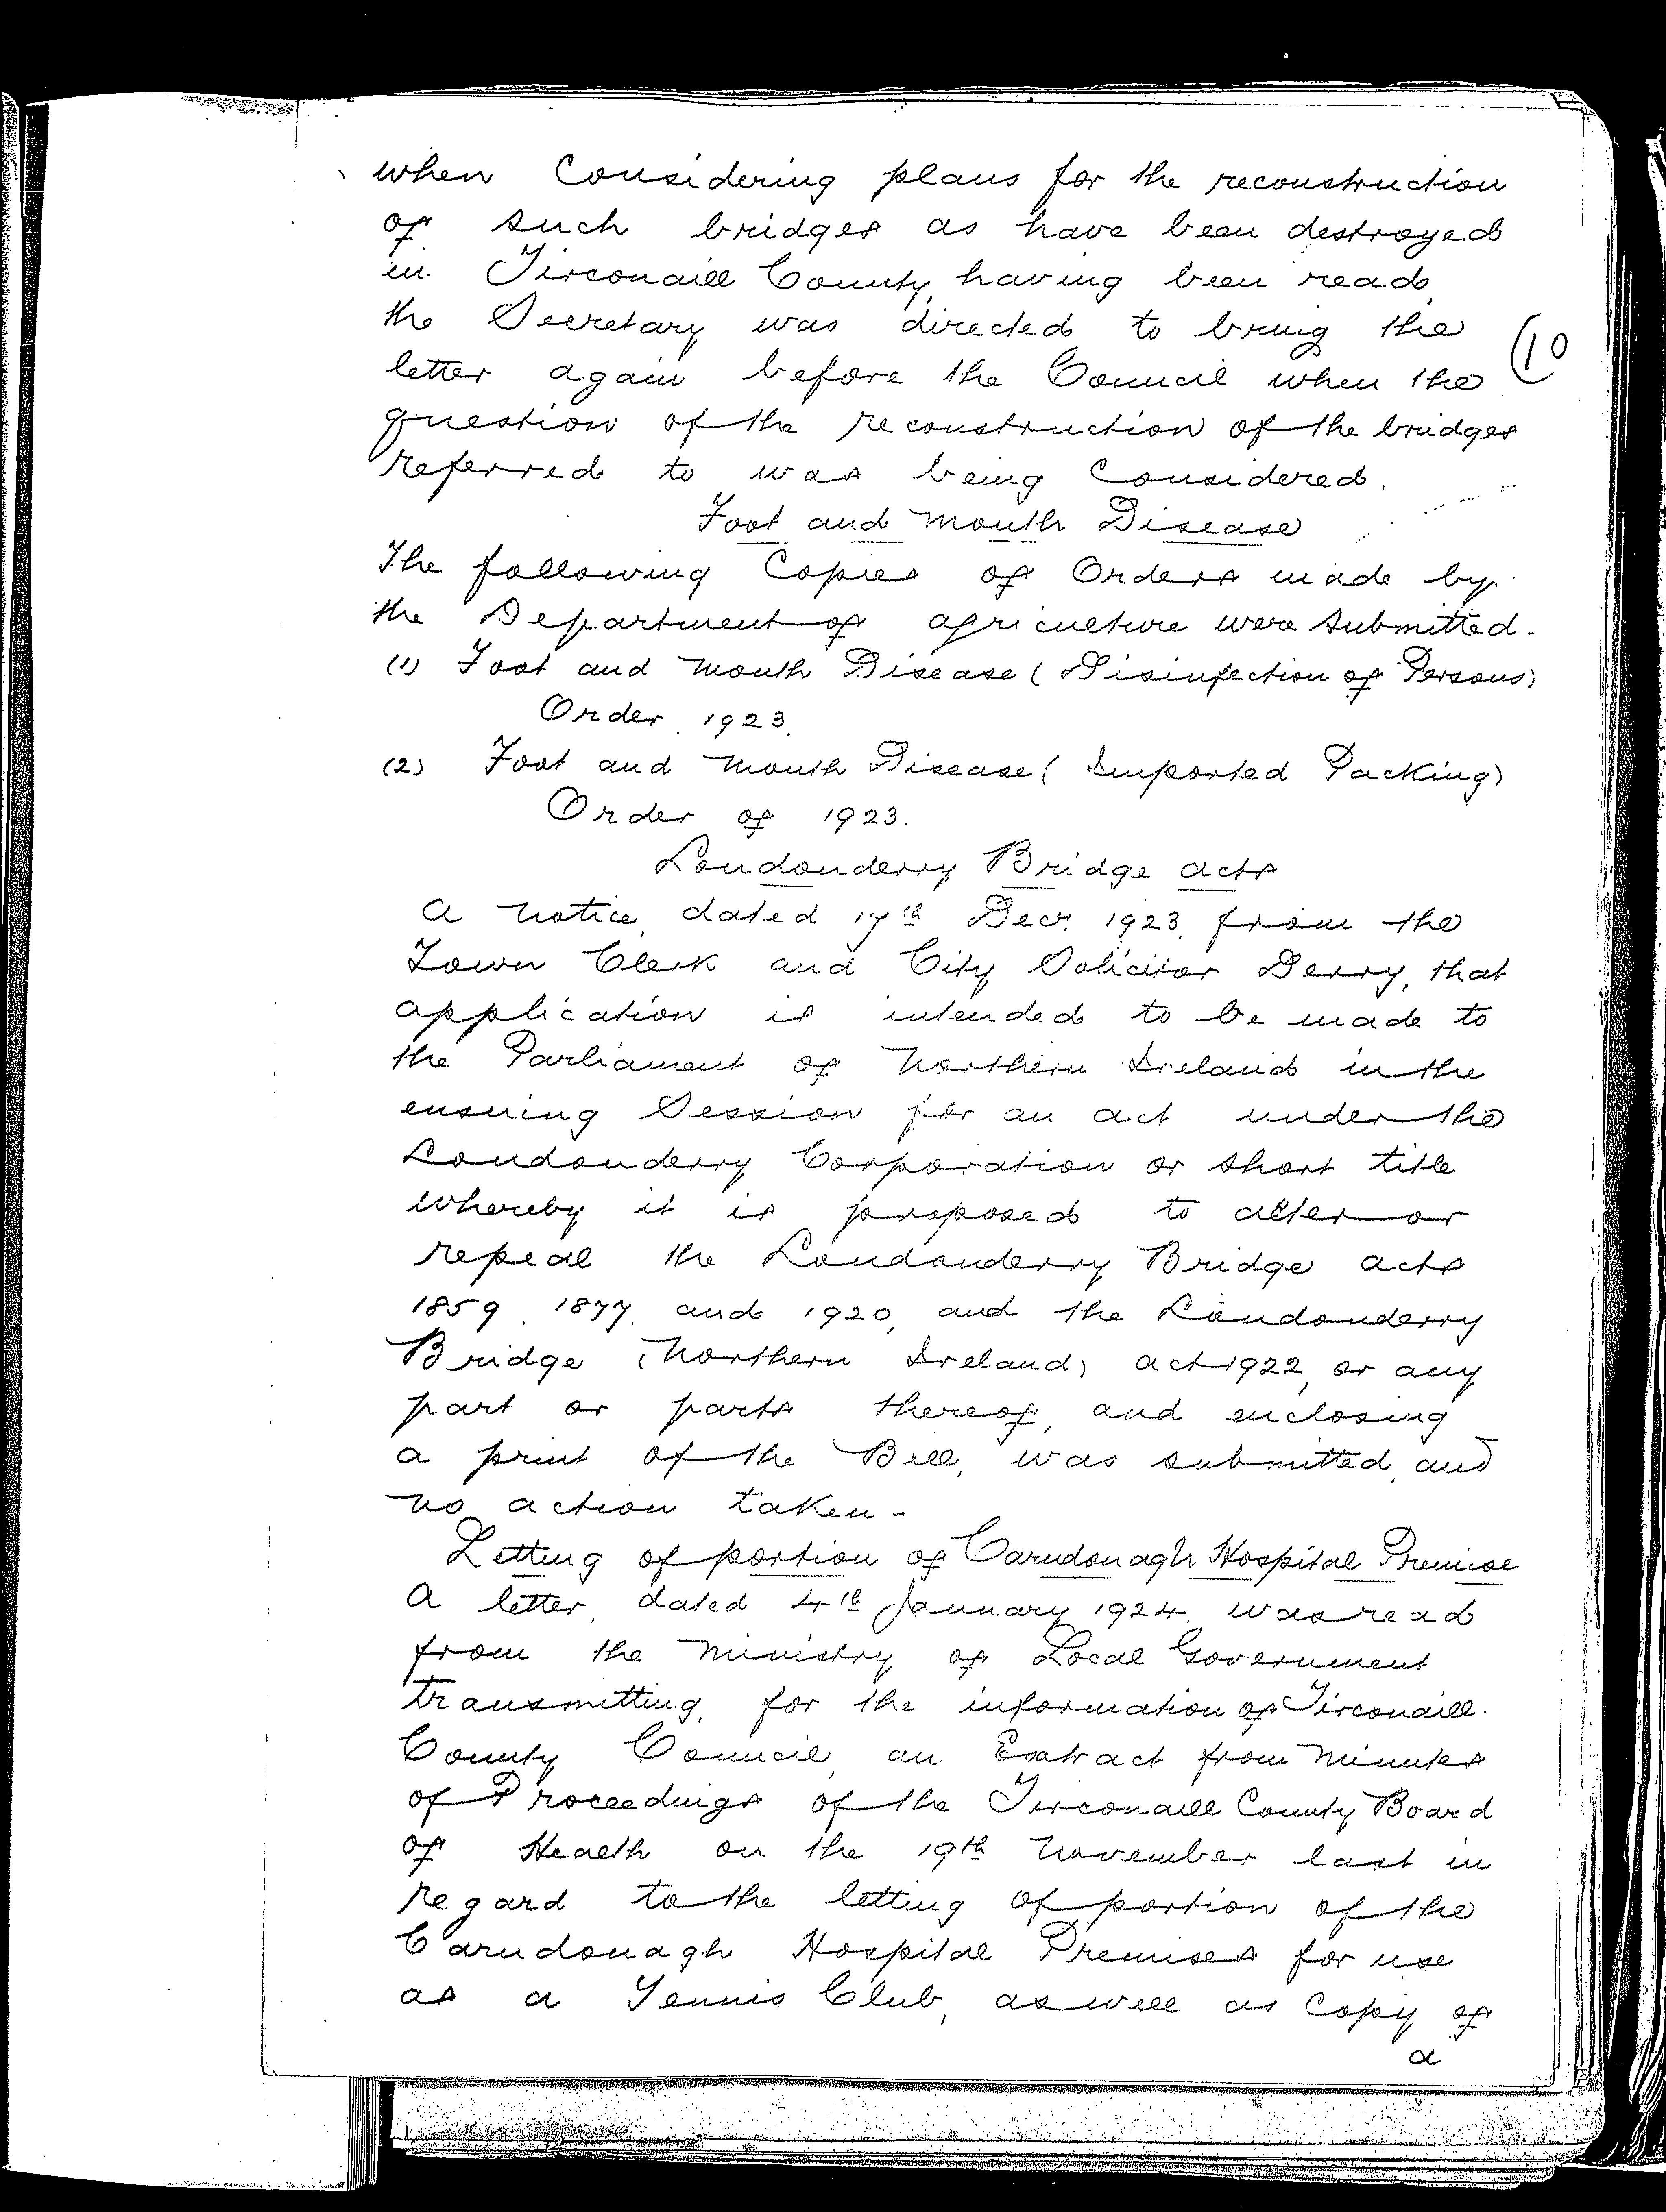 when Considering plans for the reconstruction
of such bridges as have been destroyed
in Tirconaill County, having been read,
the Secretary was directed to bring the
(10
letter again before the Council when the
question of the reconstruction of the bridges
referred to was being Considered.
Foot and Mouth Disease
The following Copies of Orders made by
the Department of agriculture were submitted.
(1) Foot and Mouth Disease (Disinfection of Persons)
Order 1923.
(2) Foot and Mouth Disease (Imported Packing)
Order of 1923.
Londonderry Bridge acts
A notice, dated 17th Decr. 1923, from the
Town Clerk and City Solicitor Derry, that
application is intended to be made to
the Parliament of Northern Ireland in the
ensuing Session for an act under the
Londonderry Corporation or short title
whereby it is proposed to alter or
repeal the Londonderry Bridge acts
1859, 1877, and 1920, and the Londonderry
Bridge (Northern Ireland) act 1922, or any
part or parts thereof, and enclosing
a print of the Bill, was submitted, and
no action taken -
Letting of portion of Carndonagh Hospital Premise
A letter, dated 4th January 1924, was read
from the Ministry of Local Government
transmitting, for the information of Tirconaill
County Council, an Extract from Minutes
of Proceedings of the Tirconaill County Board
of Health on the 19th November last in
regard to the letting of portion of the
Carndonagh Hospital Premises for use
as a Tennis Club, as well as Copy of
a